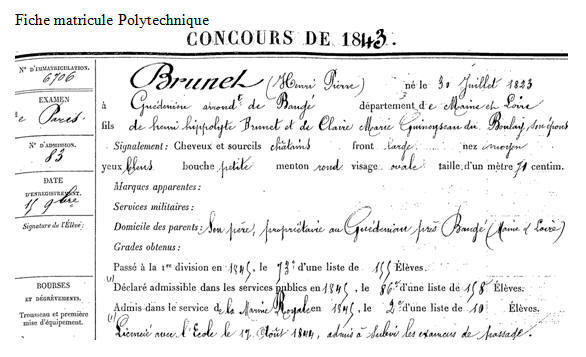 Fiche matricule Polytechnique
CONCOURS DE 1843.
N° D'IMMATRICULATION.
6706
EXAMEN
de Paris
N° D'ADMISSION.
83
DATE
D'ENREGISTREMENT.
15 9bre
Signature de l'Élève:
BOURSES
ET DÉGRÈVEMENTS.
Trousseau et première
mise d'équipement.
Brunet (Henri Pierre) né le 30 Juillet 1823
à Guédeniau arrondt de Baugé département de Maine et Loire
fils de henri hippolyte Brunet et de Claire Marie Guinoyseau du Boulay, son épouse
Signalement: Cheveux et sourcils châtains front large nez moyen
yeux bleus bouche petite menton rond visage ovale taille d'un mètre 71 centim.
Marques apparentes:
Services militaires:
Domicile des parents: Son père, propriétaire au Guédeniau près Baugé (Maine & Loire)
Grades obtenus:
Passé à la 1re division en 1845, le 73e d'une liste de 155 Élèves.
Déclaré admissible dans les services publics en 1845, le 86e d'une liste de 158 Élèves.
Admis dans le service de la Marine Royale en 1845, le 2e d'une liste de 10 Élèves.
Licencié avec l'Ecole le 17 Août 1844, admis à subir les examens de passage.